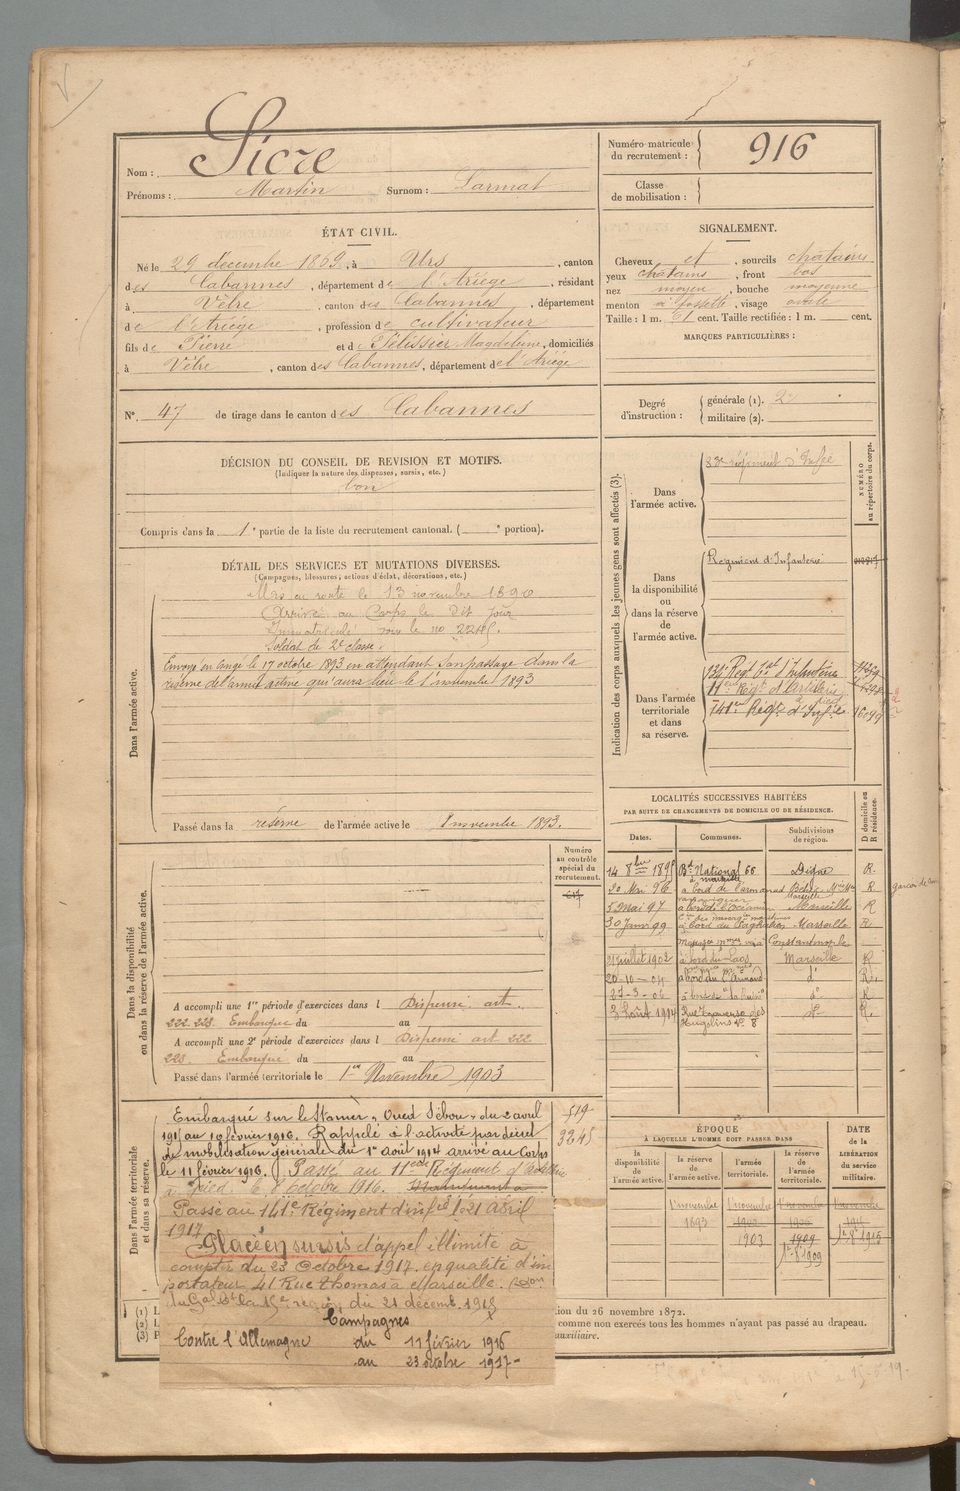 Nom : Sicre
Prénoms : Martin Surnom : Larmat
Numéro matricule du recrutement : 916
Classe de mobilisation :
ÉTAT CIVIL.
Né le 29 décembre 1869, à Urs, canton
des Cabannes, département de l'Ariége, résidant
à Vèbre, canton des Cabannes, département
de l'Ariége, profession de cultivateur
fils de Pierre et de Pélissier Magdeleine, domiciliés
à Vèbre, canton des Cabannes, département de l'Ariége
N°. 47 de tirage dans le canton des Cabannes
SIGNALEMENT.
Cheveux et, sourcils châtains
yeux châtains, front bas
nez moyen, bouche moyenne
menton à fossette, visage ovale
Taille : 1 m. 61 cent. Taille rectifiée : 1 m. cent.
MARQUES PARTICULIÈRES :
Degré d'instruction : générale (1). 2
militaire (2).
DÉCISION DU CONSEIL DE REVISION ET MOTIFS.
(Indiquer la nature des dispenses, sursis, etc.)
bon
Compris dans la 1e partie de la liste du recrutement cantonal. ( e portion).
DÉTAIL DES SERVICES ET MUTATIONS DIVERSES.
(Campagnes, blessures, actions d'éclat, décorations, etc.)
Dans l'armée active.
Mis en route le 13 novembre 1890
Arrivé au Corps le dit jour
Immatriculé sous le no
Soldat de 2e classe.
Envoyé en congé le 17 octobre 1893 en attendant son passage dans la
réserve de l'armée active qui aura lieu le 1er novembre 1893
Passé dans la réserve de l'armée active le 1 novembre 1893.
Indication des corps auxquels les jeunes gens sont affectés (3).
NUMÉRO au répertoire du corps.
Dans l'armée active.
83e régiment d'Infie
Dans la disponibilité ou dans la réserve de l'armée active.
Régiment d'Infanterie
Dans l'armée territoriale et dans sa réserve.
134e Régt tal d'Infanterie
11eme Régt d'artillerie à pied
141eme Régt d'Infie 16099
LOCALITÉS SUCCESSIVES HABITÉES
PAR SUITE DE CHANGEMENTS DE DOMICILE OU DE RÉSIDENCE.
Dates. Communes. Subdivisions de région. D domicile ou R résidence.
14 8bre 1895 Bd National 66 à Marseille Digne R.
20 Mai 96 à bord de l' R
5 Mai 97 Marseille R
30 Janv 99 à bord du Marseille R.
Constantinople
21 juillet 1902 à bord du Laos Marseille R
20-10-04 à bord du do R.
27-3-06 à bord do R
3 Août 1914 do R.
Dans la disponibilité ou dans la réserve de l'armée active.
Numéro au contrôle spécial du recrutement.
617
A accompli une 1re période d'exercices dans l Dispensé art.
222. 223. Embarqué du au
A accompli une 2e période d'exercices dans l Dispensé art 222
223 Embarqué du au
Passé dans l'armée territoriale le 1er Novembre 1903
Dans l'armée territoriale et dans sa réserve.
Embarqué sur le Stamer "Oued Sébou" du 2 avril
1915 au 10 février 1916. Rappelé à l'activité par décret
de mobilisation générale du 1er août 1914 arrivé au Corps
le 11 février 1916. Passé au 11eme Régiment d'Artillerie
à pied le 8 octobre 1916.
Passé au 141e Régiment d'infie le 21 avril
1917
Placé en sursis d'appel illimité à
compter du 23 Octobre 1917. en qualité d'im
portateur 41 Rue Thomas à Marseille.
du Gal Ct la 15e région du 21 décemb. 1918
Campagnes
Contre l'Allemagne du 11 février 1916
au 23 octobre 1917-
519
3245
ÉPOQUE
À LAQUELLE L'HOMME DOIT PASSER DANS
la disponibilité de l'armée active. la réserve de l'armée active. l'armée territoriale. la réserve de l'armée territoriale.
DATE de la LIBÉRATION du service militaire.
1 novembre 1893
1 novembre 1903
1909
1er 8bre 1909
1er 8bre 1915
(1) L
(2) L
(3) P
tion du 26 novembre 1872.
comme non exercés tous les hommes n'ayant pas passé au drapeau.
auxiliaire.